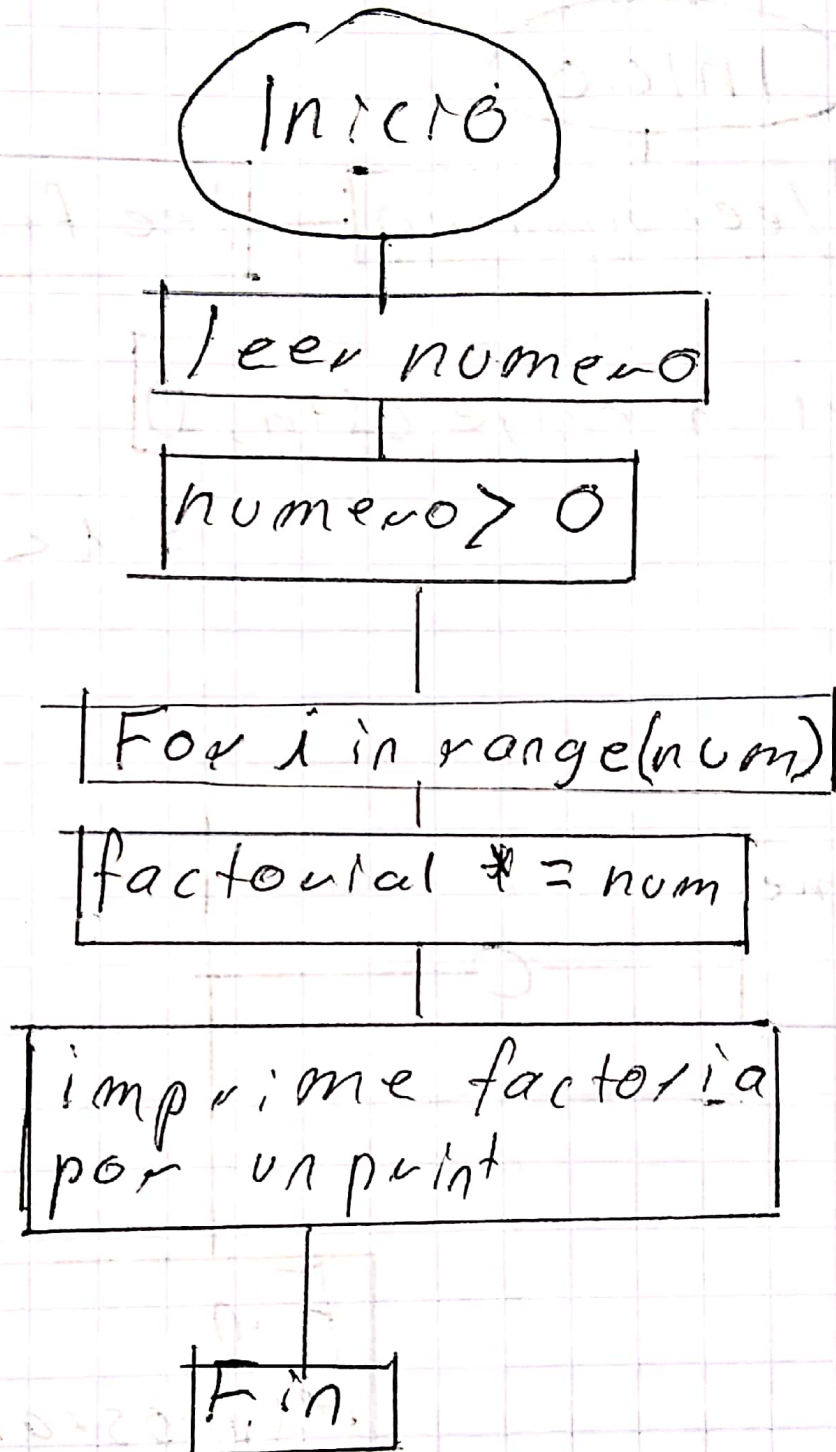 Inicio
leer numero
numero > 0
For i in range(num)
factorial *= num
imprime factoria
por un print
Fin